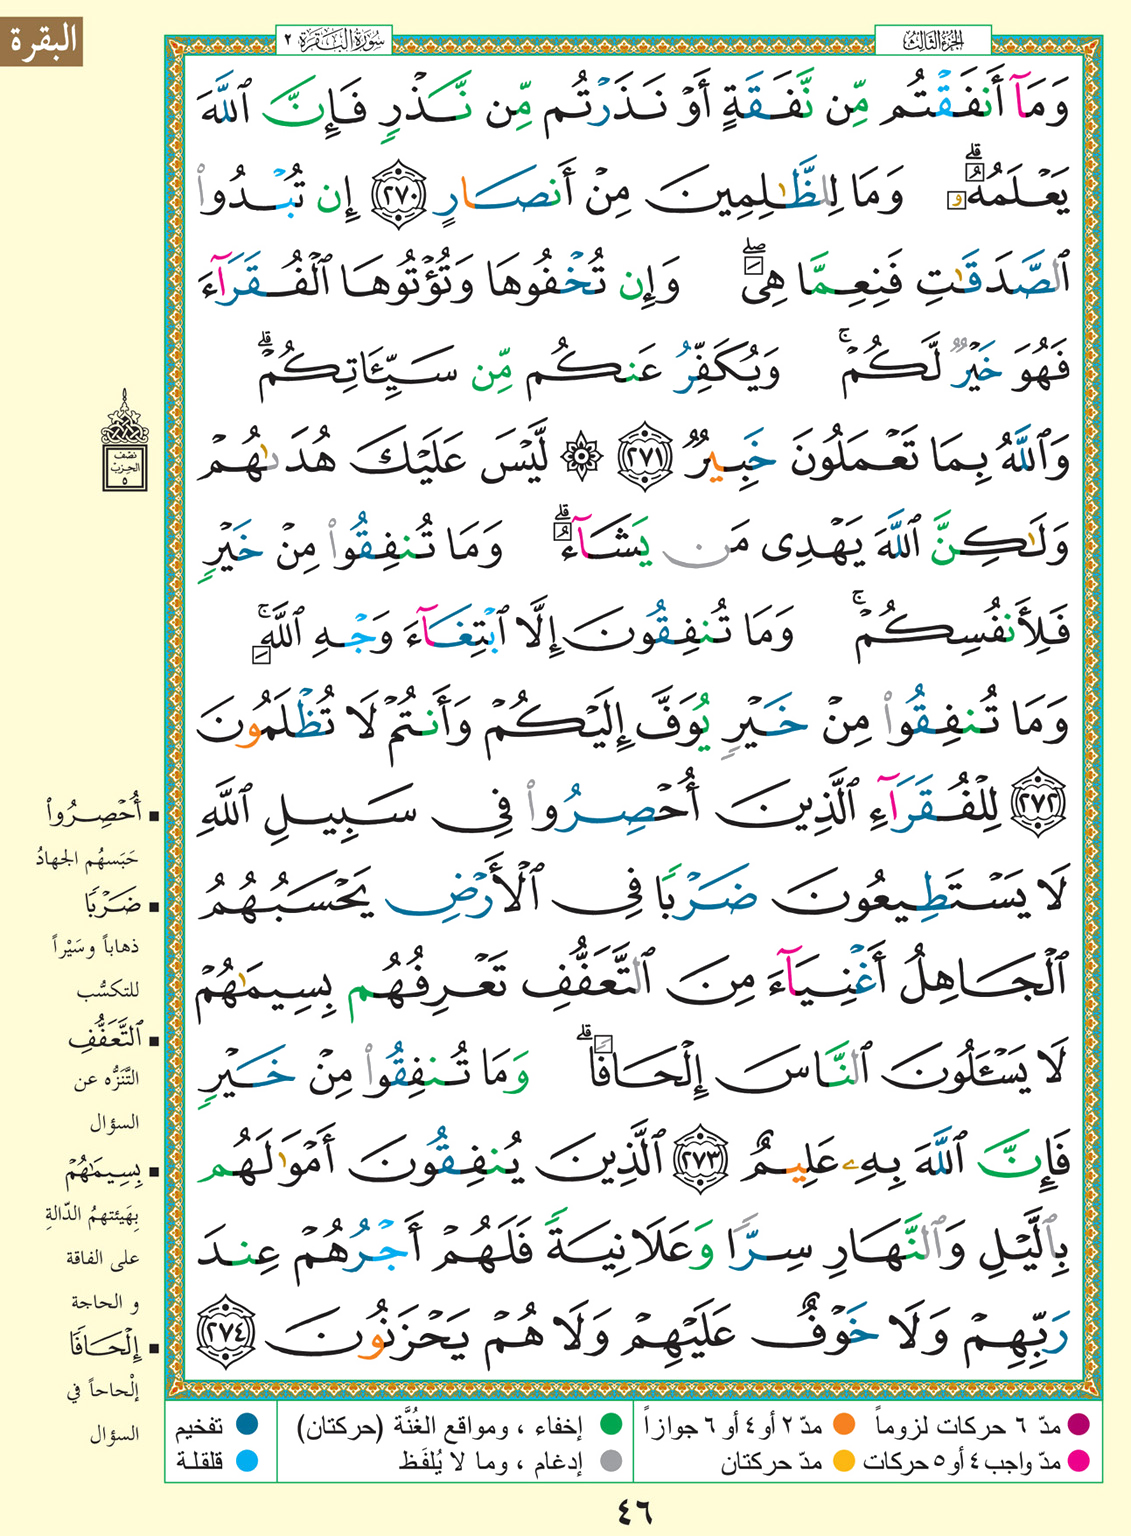 البقرة
سُورَةُ البَقَرَة ٢
الجزء الثالث
وَمَآ أَنفَقْتُم مِّن نَّفَقَةٍ أَوْ نَذَرْتُم مِّن نَّذْرٍ فَإِنَّ ٱللَّهَ
يَعْلَمُهُۥ ۗ وَمَا لِلظَّٰلِمِينَ مِنْ أَنصَارٍ ٢٧٠ إِن تُبْدُوا۟
ٱلصَّدَقَٰتِ فَنِعِمَّا هِىَ ۖ وَإِن تُخْفُوهَا وَتُؤْتُوهَا ٱلْفُقَرَآءَ
فَهُوَ خَيْرٌ لَّكُمْ ۚ وَيُكَفِّرُ عَنكُم مِّن سَيِّئَاتِكُمْ ۗ
وَٱللَّهُ بِمَا تَعْمَلُونَ خَبِيرٌ ٢٧١ ۞ لَّيْسَ عَلَيْكَ هُدَىٰهُمْ
وَلَٰكِنَّ ٱللَّهَ يَهْدِى مَن يَشَآءُ ۗ وَمَا تُنفِقُوا۟ مِنْ خَيْرٍ
فَلِأَنفُسِكُمْ ۚ وَمَا تُنفِقُونَ إِلَّا ٱبْتِغَآءَ وَجْهِ ٱللَّهِ ۚ
وَمَا تُنفِقُوا۟ مِنْ خَيْرٍ يُوَفَّ إِلَيْكُمْ وَأَنتُمْ لَا تُظْلَمُونَ
٢٧٢ لِلْفُقَرَآءِ ٱلَّذِينَ أُحْصِرُوا۟ فِى سَبِيلِ ٱللَّهِ
لَا يَسْتَطِيعُونَ ضَرْبًا فِى ٱلْأَرْضِ يَحْسَبُهُمُ
ٱلْجَاهِلُ أَغْنِيَآءَ مِنَ ٱلتَّعَفُّفِ تَعْرِفُهُم بِسِيمَٰهُمْ
لَا يَسْـَٔلُونَ ٱلنَّاسَ إِلْحَافًا ۗ وَمَا تُنفِقُوا۟ مِنْ خَيْرٍ
فَإِنَّ ٱللَّهَ بِهِۦ عَلِيمٌ ٢٧٣ ٱلَّذِينَ يُنفِقُونَ أَمْوَٰلَهُم
بِٱلَّيْلِ وَٱلنَّهَارِ سِرًّا وَعَلَانِيَةً فَلَهُمْ أَجْرُهُمْ عِندَ
رَبِّهِمْ وَلَا خَوْفٌ عَلَيْهِمْ وَلَا هُمْ يَحْزَنُونَ ٢٧٤
نصف
الحزب
٥
أُحْصِرُوا۟
حَبَسهُم الجهادُ
ضَرْبًا
ذهاباً وسَيْراً
للتكسُّب
ٱلتَّعَفُّفِ
التَّنَزُّه عن
السؤال
بِسِيمَٰهُمْ
بِهَيئتهمُ الدّالةِ
على الفاقة
و الحاجة
إِلْحَافًا
إلْحاحاً في
السؤال
مدّ ٦ حركات لزوماً
مدّ ٢ أو ٤ أو ٦ جوازاً
إخفاء ، ومواقع الغُنَّة (حركتان)
تفخيم
مدّ واجب ٤ أو ٥ حركات
مدّ حركتان
إدغام ، وما لا يُلفَظ
قلقلة
٤٦